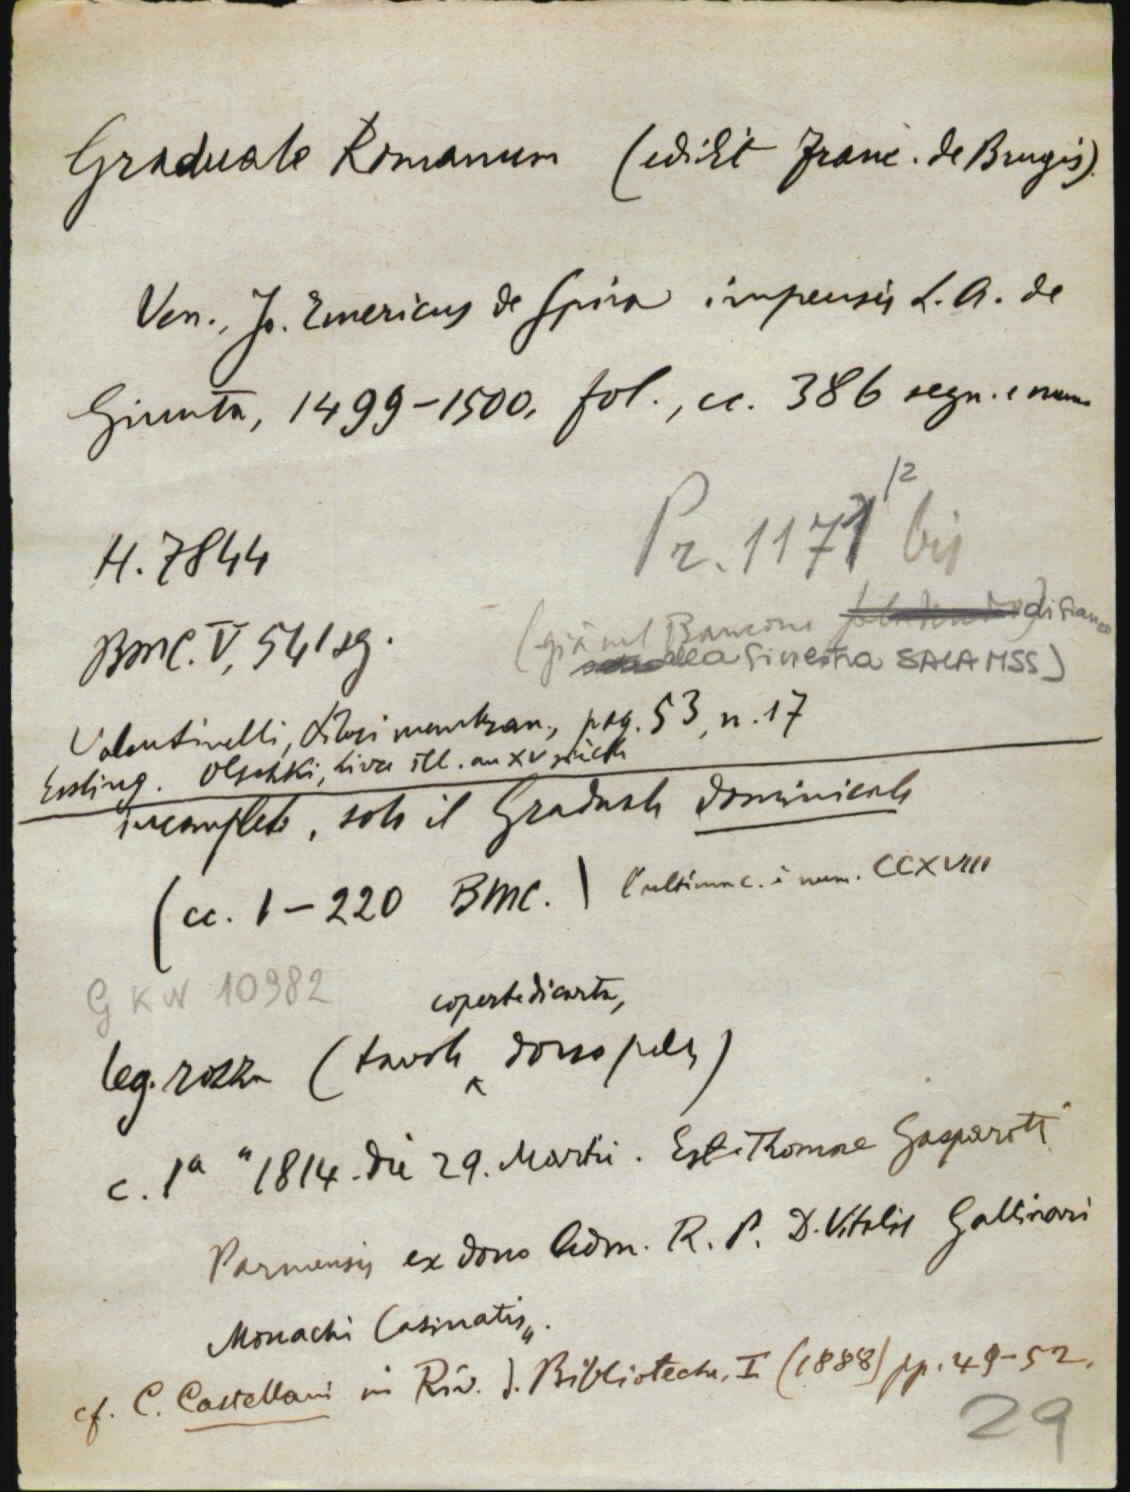 Graduale Romanum (edidit Franc. de Brugis).
Ven., Jo. Emericus de Spira impensis L. A. de
Giunta, 1499-1500, fol., cc. 386 segn. e num
/2
Pr. 1171 bis
H. 7844
BMC. V, 541 sg.
(già nel Bancone di fianco
alla finestra SALA MSS)
Valentinelli, Libri membran., pag. 53, n. 17
Essling. Olschki, Livre ill. au XV siècle
incompleto, solo il Graduale dominicale
(cc. 1-220 BMC.) l'ultima c. è num. CCXVIII
GKW 10982
coperte di carta,
leg. rozza (tavole dorso pelle)
c. 1a "1814. die 29. Martii. Est Thomae Gasparotti
Parmensis ex dono Adm. R. P. D. Vitalis Gallinari
Monachi Casinatis".
cf. C. Castellani in Riv. d. Biblioteche, I (1888) pp. 49-52.
29